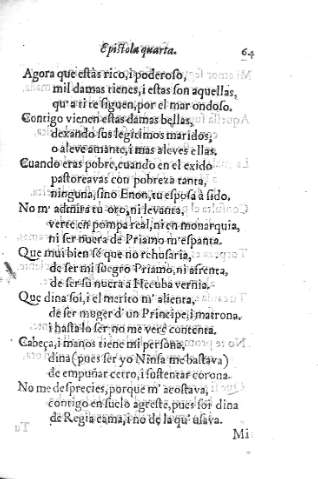 Epistola quarta. 64
Agora que estàs rico, i poderoso,
mil damas tienes, i estas son aquellas,
qu'a ti te siguen, por el mar ondoso.
Contigo vienen estas damas bellas,
dexando sus legitimos maridos,
o aleve amante, i mas aleves ellas.
Cuando eras pobre, cuando en el exido
pastoreavas con pobreza tanta,
ninguna, sino Enon, tu esposa à sido.
No m'admira tu oro, ni levanta,
verte en pompa real, ni en monarquia,
ni ser nuera de Priamo m'espanta.
Que mui bien sè que no rehusaria,
de ser mi suegro Priamo, ni afrenta,
de ser su nuera a Hecuba vernia.
Que dina soi, i el merito m'alienta,
de ser muger d'un Principe, i matrona.
i hasta lo ser no me verè contenta.
Cabeça, i manos tiene mi persona,
dina (pues ser yo Ninfa me bastava)
de empuñar cetro, i sustentar corona.
No me desprecies, porque m'acostava,
contigo en suelo agreste, pues soi dina
de Regia cama, i no de la qu'usava.
Mi